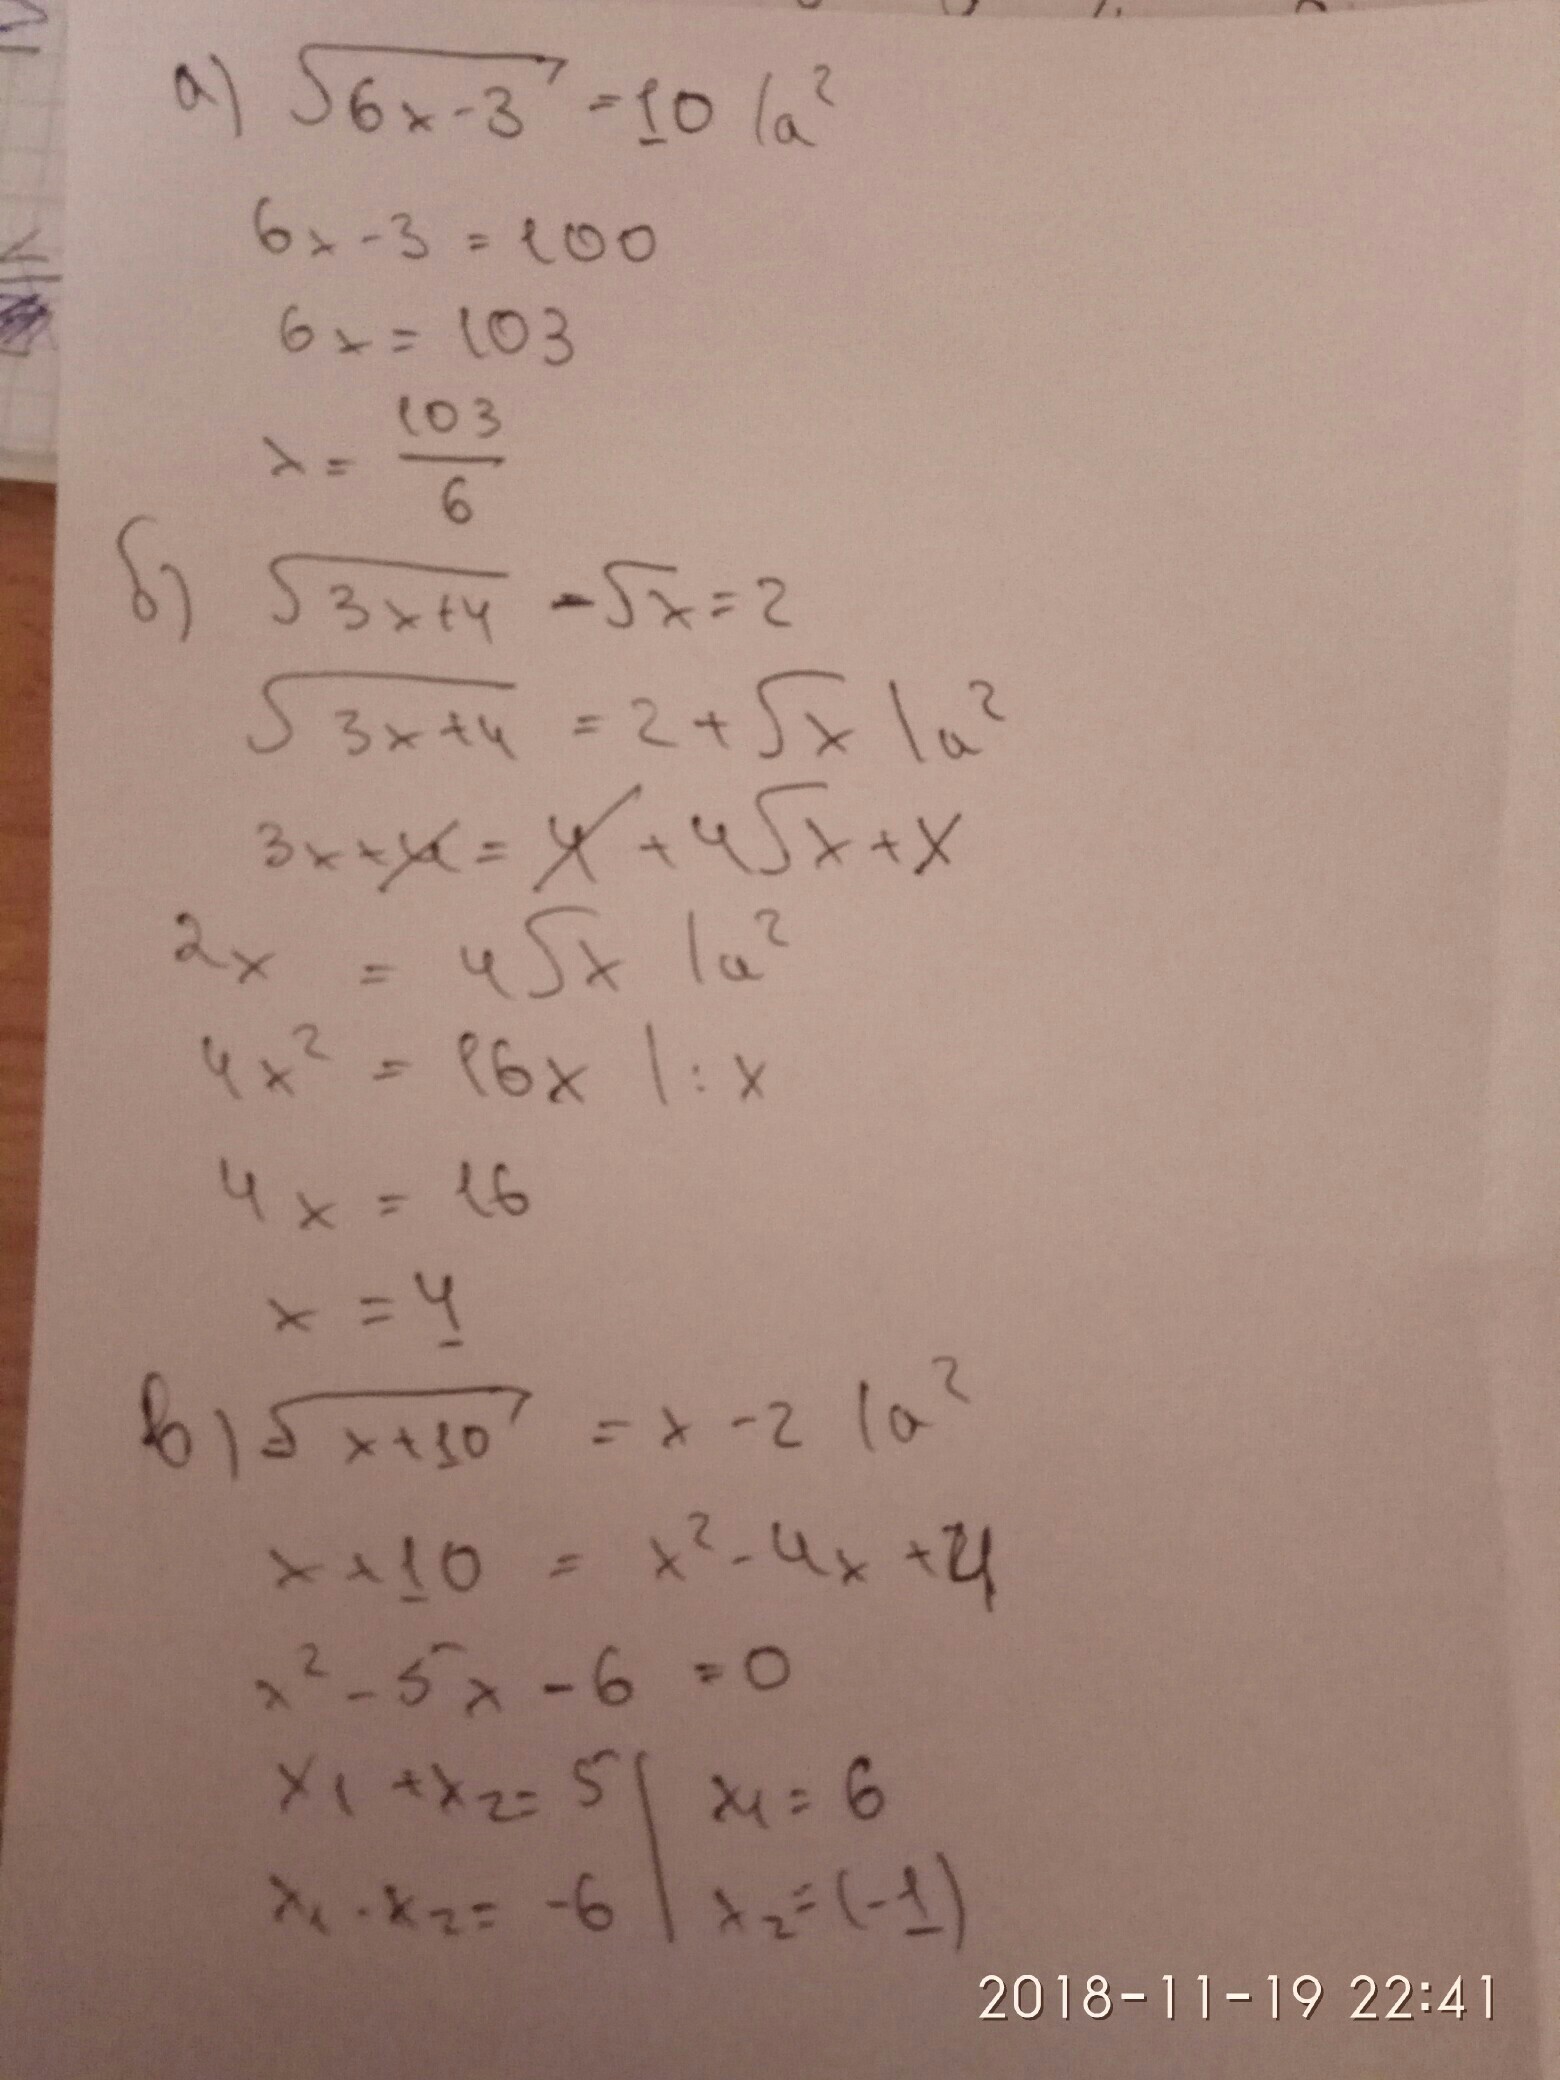 а) √6x-3 = 10 |a²
6x-3 = 100
6x = 103
x = 103/6
б) √3x+4 - √x = 2
√3x+4 = 2+√x |a²
3x+4 = 4 + 4√x + x
2x = 4√x |a²
4x² = 16x |:x
4x = 16
x = 4
в) √x+10 = x-2 |a²
x+10 = x² - 4x + 4
x² - 5x - 6 = 0
x₁ + x₂ = 5 | x₁ = 6
x₁ · x₂ = -6 | x₂ = (-1)
2018-11-19 22:41